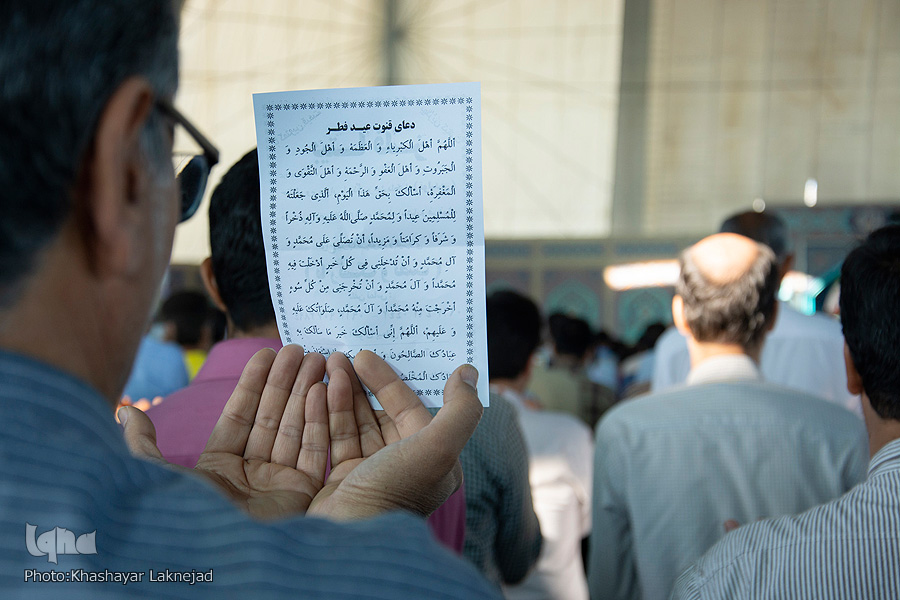 دعای قنوت عیـد فطـر
اَللّهُمَّ اَهْلَ الْكِبْرِیاءِ وَ الْعَظَمَةِ وَ اَهْلَ الْجُودِ وَ
الْجَبَرُوتِ وَ اَهْلَ الْعَفْوِ وَ الرَّحْمَةِ وَ اَهْلَ التَّقْوى وَ
الْمَغْفِرَةِ، اَسْاَلُكَ بِحَقِّ هذَا الْیَوْمِ، الَّذِی جَعَلْتَهُ
لِلْمُسْلِمینَ عیداً وَ لِمُحَمَّدٍ صَلَّی‌اللهُ عَلَیهِ وَآلِهِ ذُخْراً
وَ شَرَفاً وَ كَرامَتاً وَ مَزیداً، اَنْ تُصَلِّیَ عَلی مُحَمَّدٍ وَ
آلِ مُحَمَّدٍ وَ اَنْ تُدْخِلَنِی فِی كُلِّ خَیرٍ اَدْخَلْتَ فِیهِ
مُحَمَّداً وَ آلَ مُحَمَّدٍ وَ اَنْ تُخْرِجَنِی مِنْ كُلِّ سُوءٍ
اَخْرَجْتَ مِنْهُ مُحَمَّداً وَ آلَ مُحَمَّدٍ، صَلَواتُكَ عَلَیْهِ
وَ عَلَیهِمْ، اَللّهُمَّ اِنِّی اَسْاَلُكَ خَیرَ ما سَاَلَكَ بِهِ
عِبادُكَ الصّالِحُونَ وَ
عِبادُكَ الْمُخْلَصُ
iqna
Photo:Khashayar Laknejad